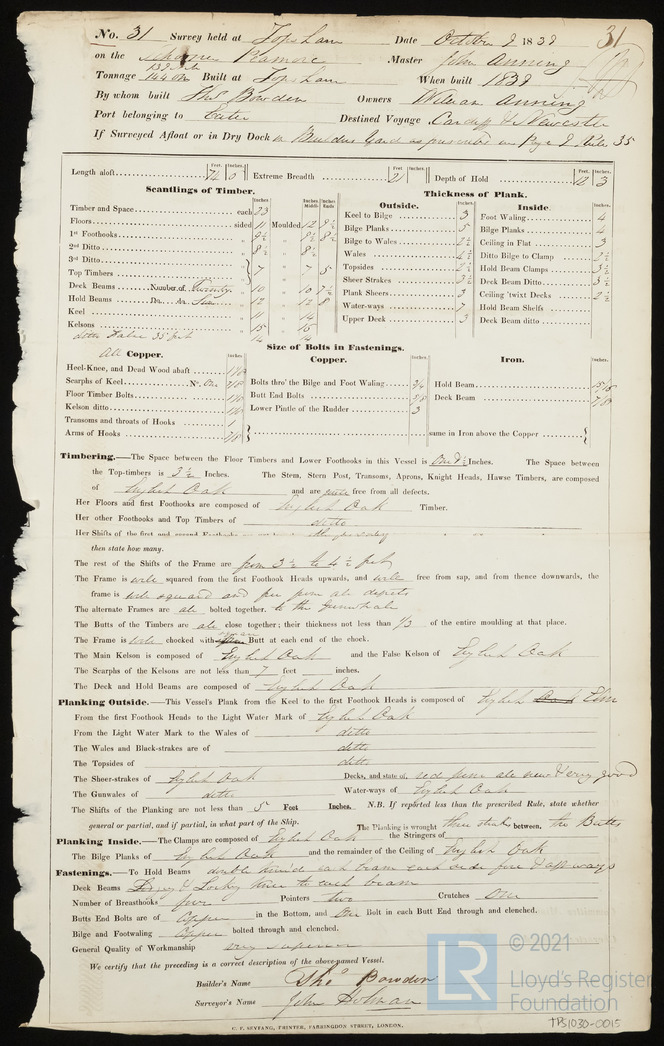 No. 31 Survey held at Topsham Date October 9 1839 31
on the Schooner Master John Anning
Tonnage 144 Built at Topsham When built 1839
By whom built Thos Bowden Owners William Anning
Port belonging to Exeter Destined Voyage Cardiff & Newcastle
If Surveyed Afloat or in Dry Dock in Builders Yard as prescribed in Page 9 Rule 35
Length aloft Feet. 74 Inches. 0 Extreme Breadth Feet. 21 Inches. Depth of Hold Feet. 12 Inches. 3
Scantlings of Timber.
Timber and Space each 23
Floors sided 11 Moulded 12 9½
1st Foothooks 9½ 9½ 8½
2nd Ditto 8½ 8½
3rd Ditto
Top Timbers 7 7 5
Deck Beams Number of Twenty 10 10 7½
Hold Beams Do. do. 12 12 8
Keel 11 14
Kelsons 15 15
ditto False 35 feet 14 14
Thickness of Plank.
Outside.
Keel to Bilge 3
Bilge Planks 5
Bilge to Wales 2½
Wales 4½
Topsides 2½
Sheer Strakes 3½
Plank Sheers 3
Water-ways 7
Upper Deck 3
Inside.
Foot Waling 4
Bilge Planks 4
Ceiling in Flat 3
Ditto Bilge to Clamp 2½
Hold Beam Clamps 3½
Deck Beam Ditto 3½
Ceiling 'twixt Decks 2½
Hold Beam Shelfs
Deck Beam ditto
Size of Bolts in Fastenings.
All Copper.
Heel-Knee, and Dead Wood abaft
Scarphs of Keel No. One 7/8
Floor Timber Bolts
Kelson ditto
Transoms and throats of Hooks 1
Arms of Hooks 7/8
Copper.
Bolts thro' the Bilge and Foot Waling 3/4
Butt End Bolts 5/8
Lower Pintle of the Rudder 3
Iron.
Hold Beam 15/16
Deck Beam 7/8
same in Iron above the Copper
Timbering.—The Space between the Floor Timbers and Lower Foothooks in this Vessel is One & ½ Inches. The Space between
the Top-timbers is 3½ Inches. The Stem, Stern Post, Transoms, Aprons, Knight Heads, Hawse Timbers, are composed
of English Oak and are quite free from all defects.
Her Floors and first Foothooks are composed of English Oak Timber.
Her other Foothooks and Top Timbers of ditto
Her Shifts of the first and second Foothooks are not
then state how many.
The rest of the Shifts of the Frame are from 3½ to 4½ feet
The Frame is well squared from the first Foothook Heads upwards, and well free from sap, and from thence downwards, the
frame is well squared and free from all defects
The alternate Frames are all bolted together. to the Gunwhale
The Butts of the Timbers are all close together; their thickness not less than 1/3 of the entire moulding at that place.
The Frame is well chocked with Butt at each end of the chock.
The Main Kelson is composed of English Oak and the False Kelson of English Oak
The Scarphs of the Kelsons are not less than 7 feet inches.
The Deck and Hold Beams are composed of English Oak
Planking Outside.—This Vessel's Plank from the Keel to the first Foothook Heads is composed of English Oak Elm
From the first Foothook Heads to the Light Water Mark of English Oak
From the Light Water Mark to the Wales of ditto
The Wales and Black-strakes are of ditto
The Topsides of ditto
The Sheer-strakes of English Oak Decks, and state of, red pine all new & very good
The Gunwales of ditto Water-ways of English Oak
The Shifts of the Planking are not less than 5 Feet Inches. N.B. If reported less than the prescribed Rule, state whether
general or partial, and if partial, in what part of the Ship. The Planking is wrought three strakes between, the Butts
Planking Inside.—The Clamps are composed of English Oak the Stringers of
The Bilge Planks of English Oak and the remainder of the Ceiling of English Oak
Fastenings.—To Hold Beams double knee'd each beam each side fore & aft ways
Deck Beams Lodging knee to each beam
Number of Breasthooks four Pointers two Crutches One
Butts End Bolts are of Copper in the Bottom, and One Bolt in each Butt End through and clenched.
Bilge and Footwaling Copper bolted through and clenched.
General Quality of Workmanship very superior
We certify that the preceding is a correct description of the above-named Vessel.
Builder's Name Thos Bowden
Surveyor's Name John Holman
C. F. SEYFANG, PRINTER, FARRINGDON STREET, LONDON.
LR © 2021
Lloyd's Register
Foundation
TPS1030-0015